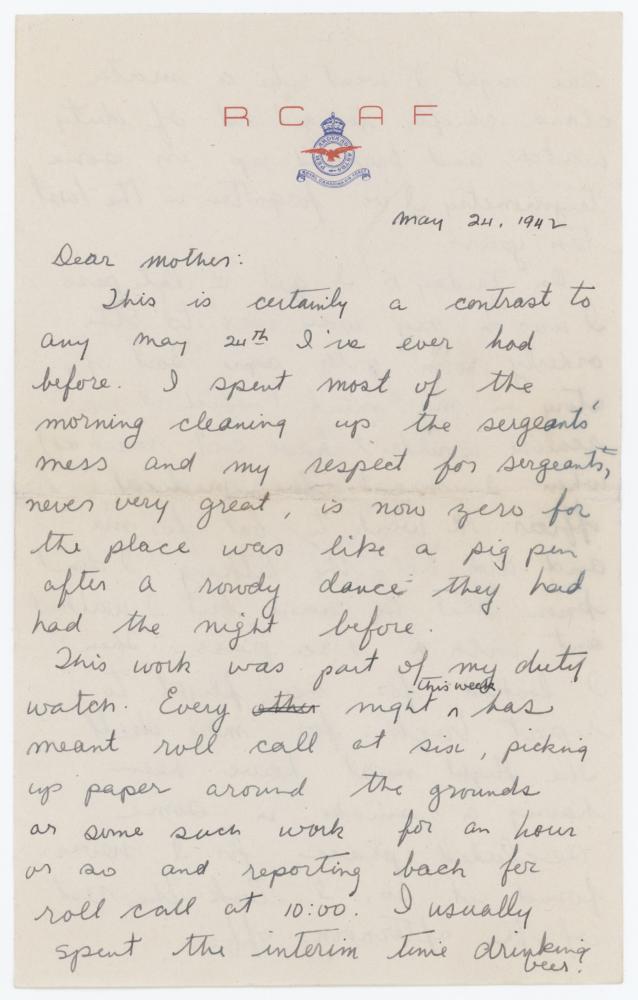 RCAF
PER ARDUA AD ASTRA
ROYAL CANADIAN AIR FORCE
May 24, 1942
Dear Mother:
This is certainly a contrast to
any May 24th I've ever had
before. I spent most of the
morning cleaning up the sergeants'
mess and my respect for sergeants,
never very great, is now zero for
the place was like a pig pen
after a rowdy dance they had
had the night before.
This work was part of my duty
watch. Every other night this week has
meant roll call at six, picking
up paper around the grounds
or some such work for an hour
or so and reporting back for
roll call at 10:00. I usually
spent the interim time drinking
beer.